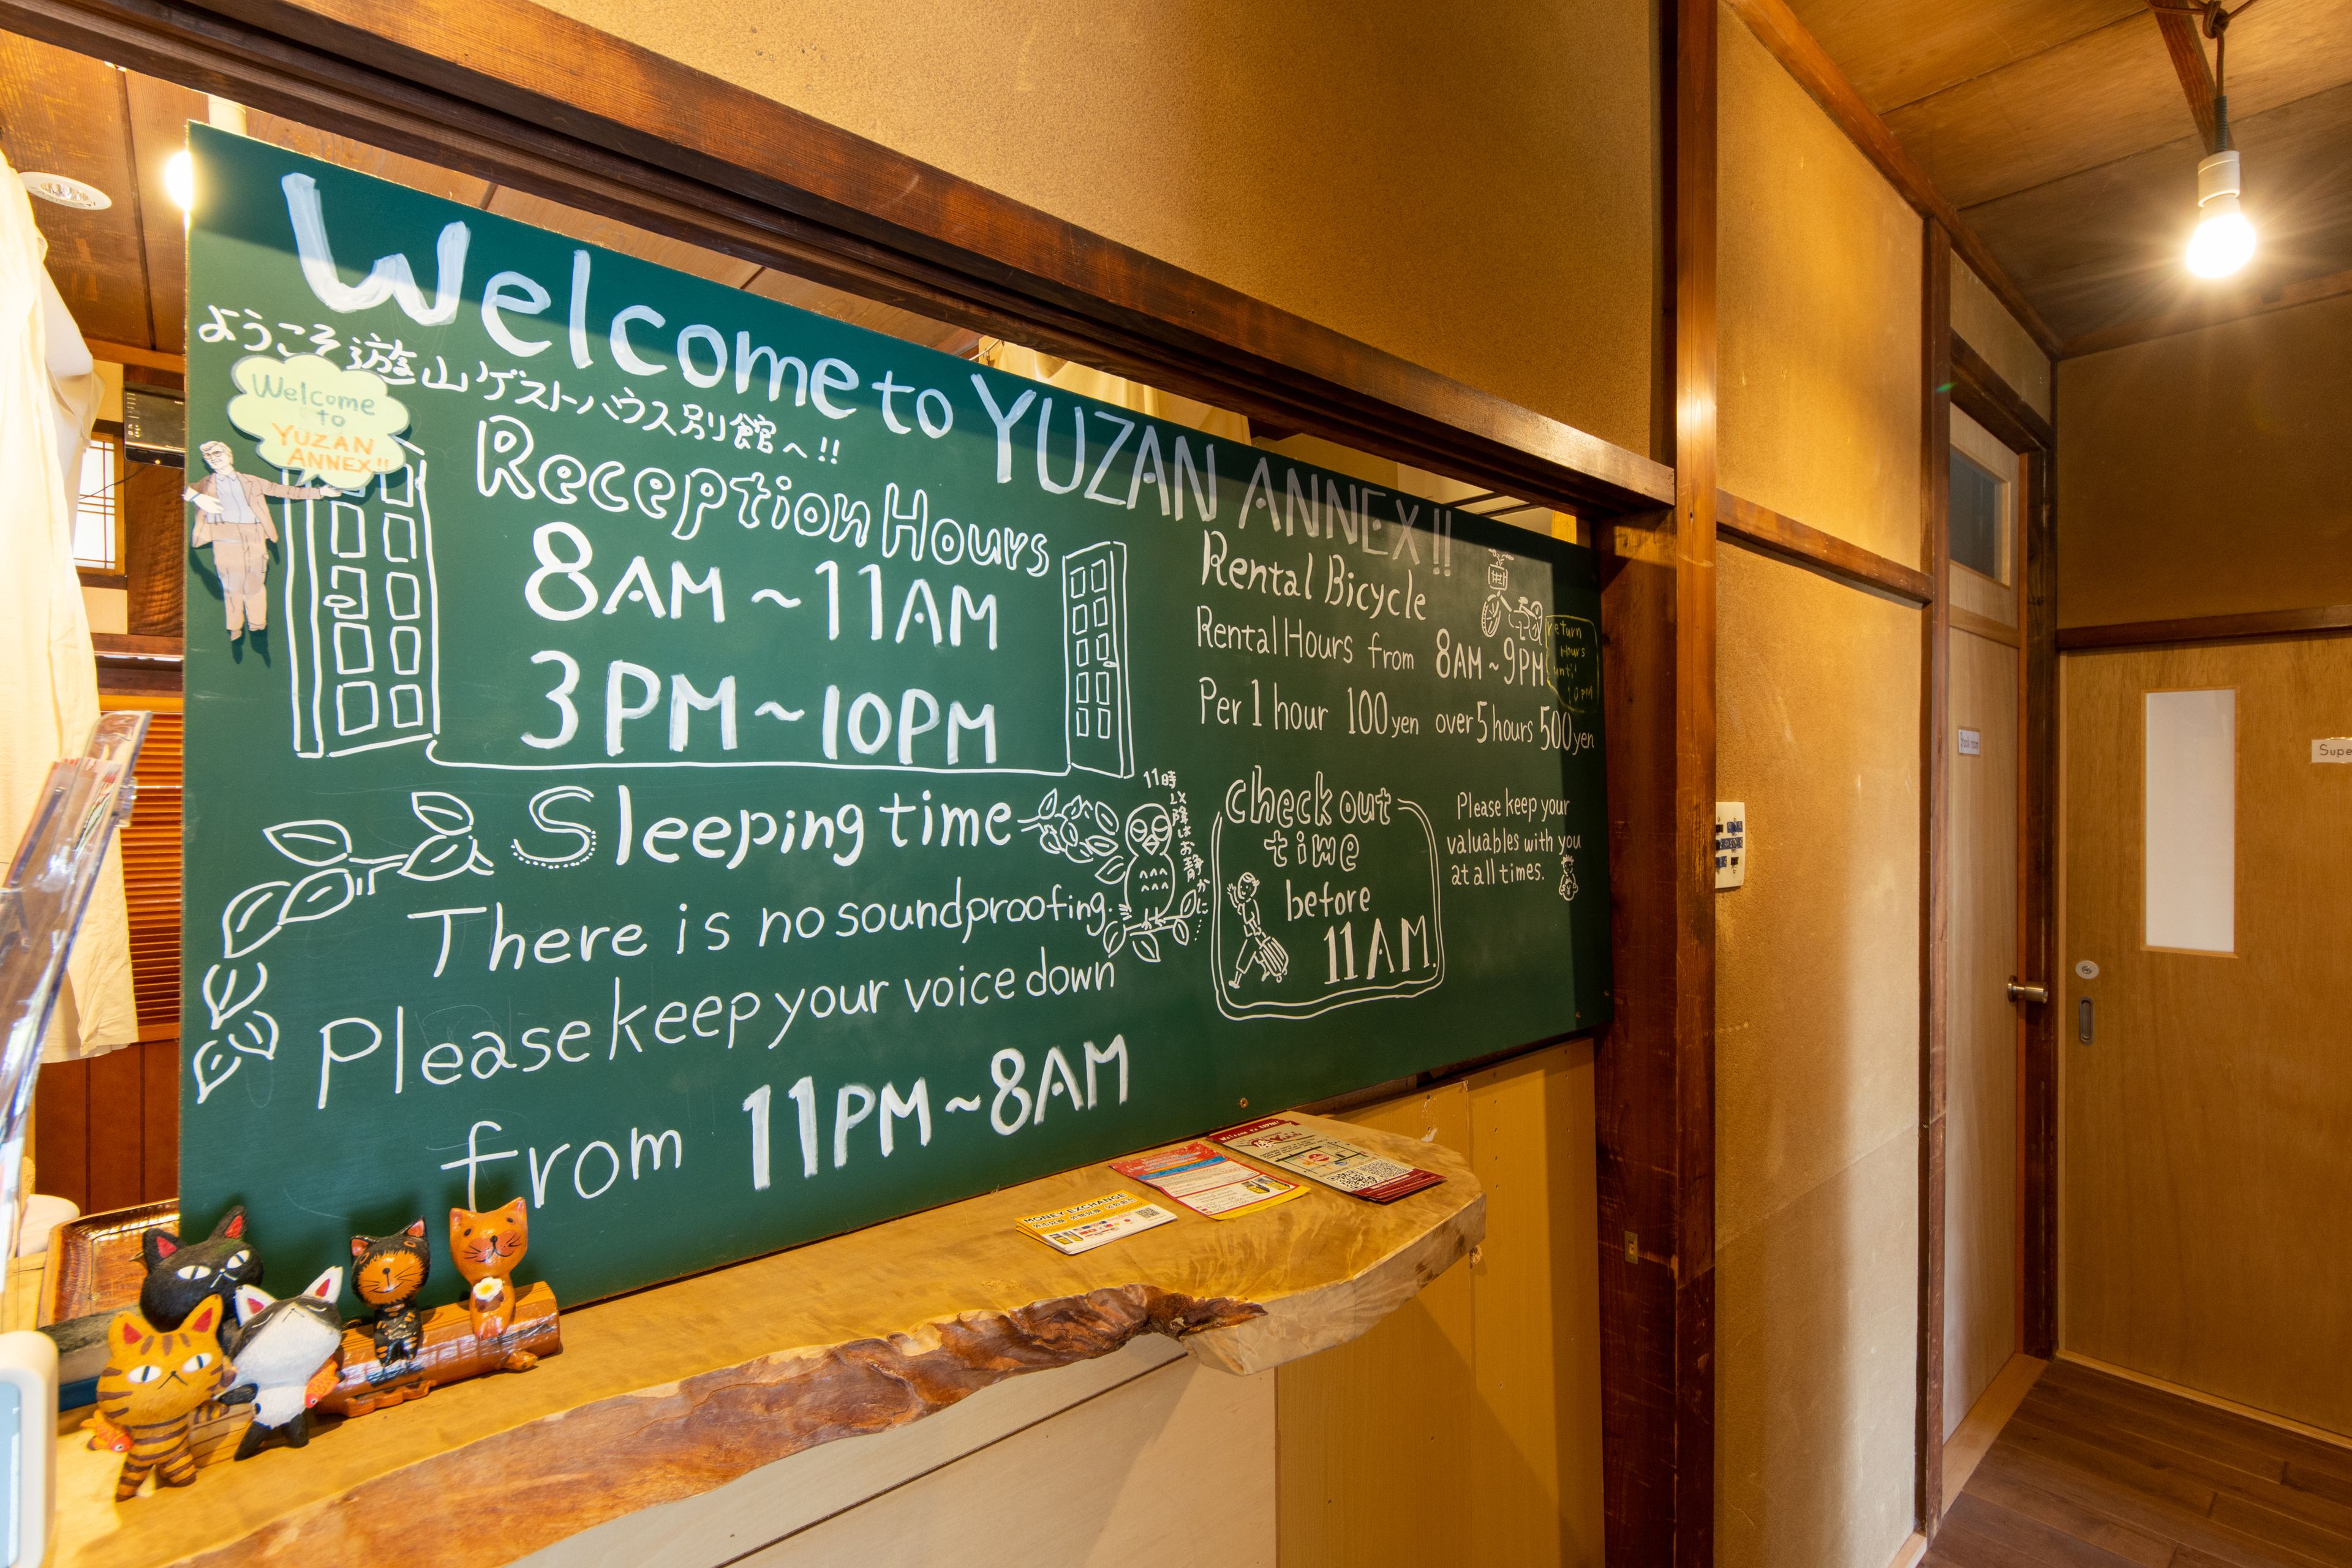 Welcome to YUZAN ANNEX!!
ようこそ遊山ゲストハウス別館へ!!
Welcome
to
YUZAN
ANNEX!!
Reception Hours
8AM~11AM
3PM~10PM
Sleeping time
11時以降はお静かに
There is no soundproofing.
Please keep your voice down
from 11PM~8AM
Rental Bicycle
Rental Hours from 8AM~9PM
return
Hours
until
10pm
Per 1 hour 100yen over 5 hours 500yen
Check out
time
before
11AM.
Please keep your
valuables with you
at all times.
MONEY EXCHANGE
Supe